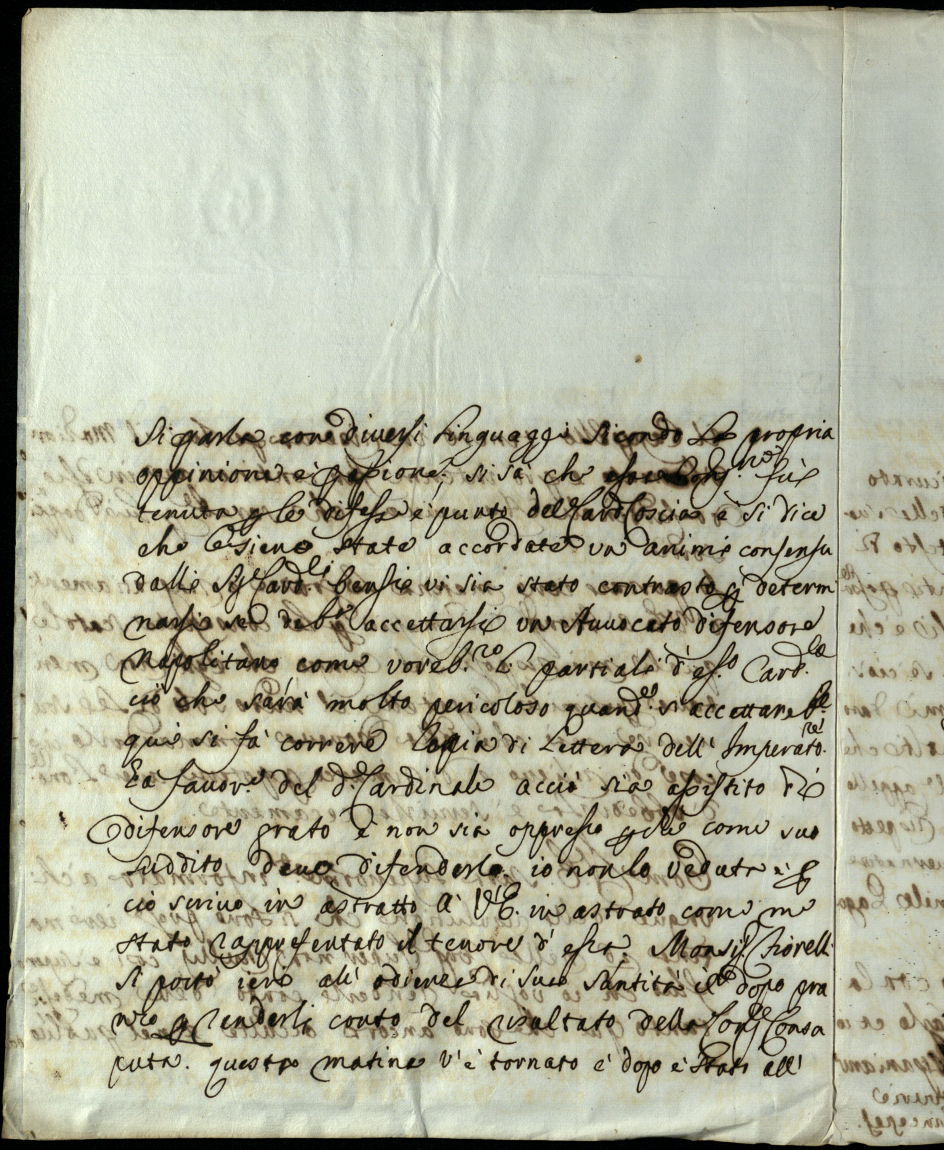 Si parla con diversi linguaggi secondo la propria
oppinione e passione. si sà che fù
tenuta p le difese e punto del Card Coscia e si dice
che le sieno state accordate un animi consensu
dalli Sig.ri Card.li bensie vi sia stato contrasto p determi
narsi se deb.a accettarsi un Avvocato difensore
Napolitano come voreb.ro i partiali d' esso Card.le
ciò che sarà molto pericoloso quand.o si accettareb.e
qui si fà correre Copia di Lettera dell' Imperato.re
a favor del d.o Cardinale acciò sia assistito di
difensore grato e non sia oppresso p che come suo
suddito deve difenderlo. io non lo veduta e p
ciò scrivo in astratto a V.E. in astrato come m
stato rappresentato il tenore d' essa. Monsig. Fiorelli
si portò ieri all' odienza di Sua Santità il dopo pra
nzo p renderli conto del risultato della Cong.e Consa
puta. questa matina v'è tornato e dopo è stato all'